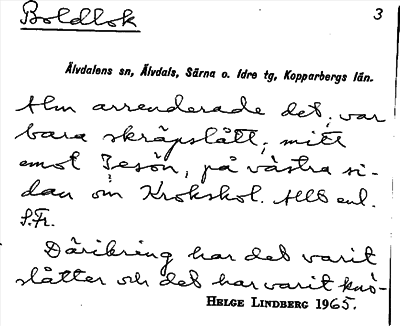 Boldlok
3
Älvdalens sn, Älvdals, Särna o. Idre tg, Kopparbergs län.
Alm arrenderade det, var
bara skräpslått, mitt
emot Jesön, på västra si-
dan om Krokskol. Allt enl.
S.Fr.
Därikring har det varit
slåtter och det har varit knö-
HELGE LINDBERG 1965.